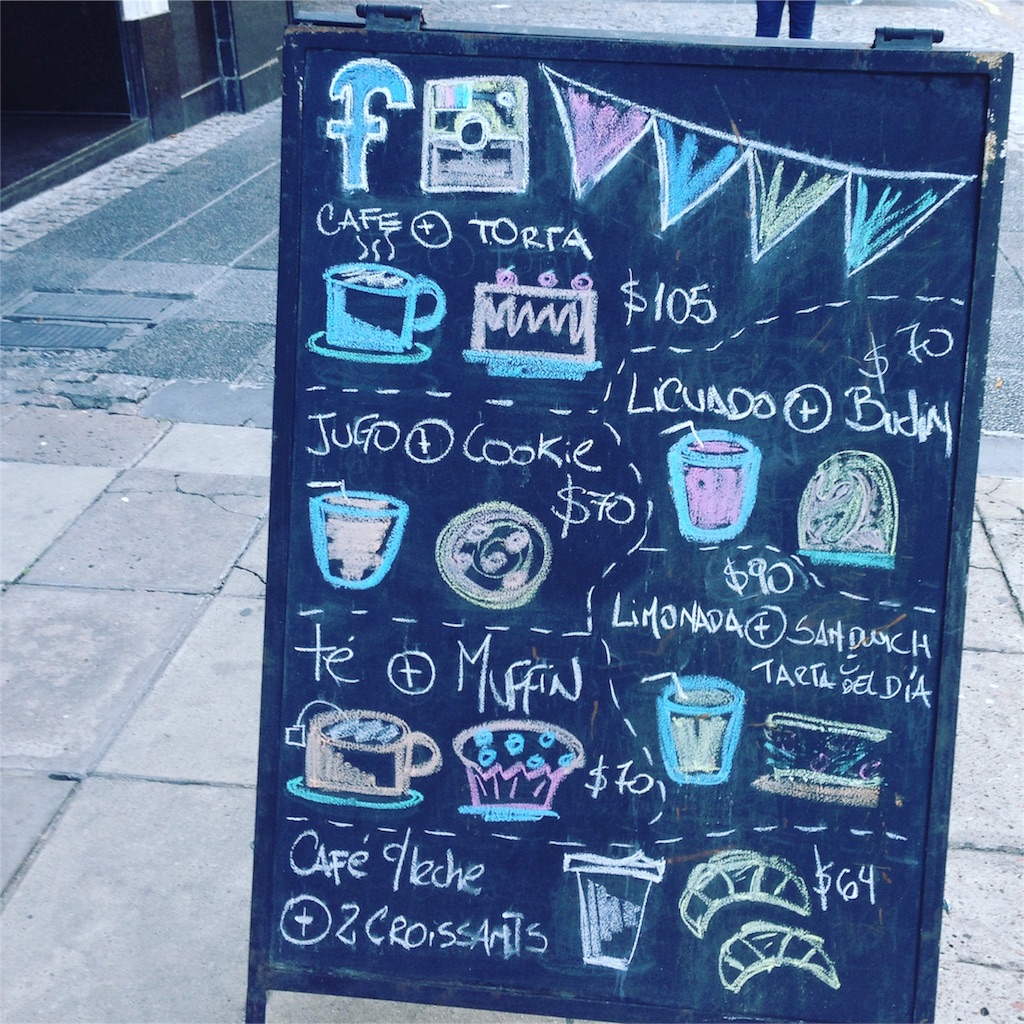 f
CAFE + TORTA
$105
$70
LICUADO + Budín
JUGO + Cookie
$70
$90
LIMONADA + SANDWICH
ó
TARTA DEL DÍA
té + MUFFIN
$70
Café c/leche
+ 2 CROISSANTS
$64